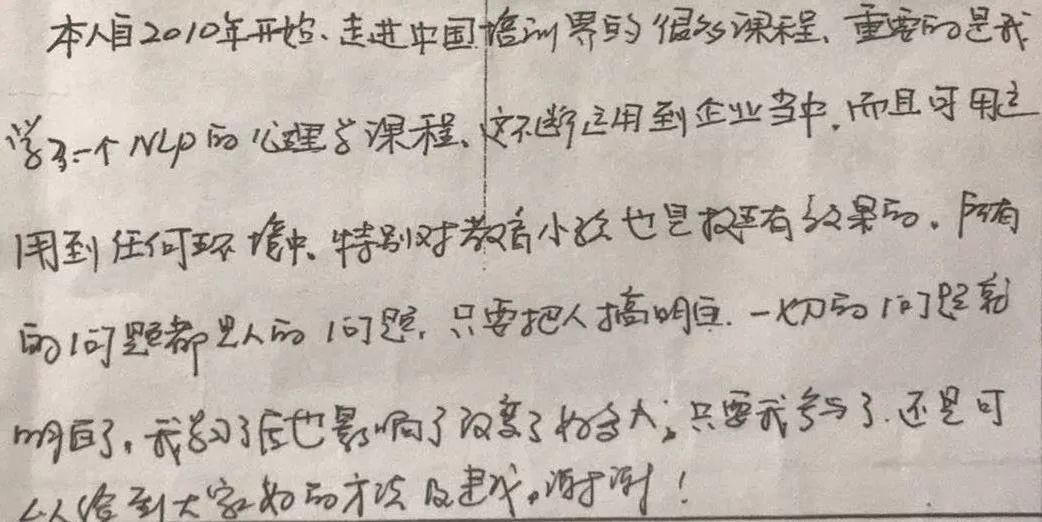 本人自2010年开始、走进中国培训界的很多课程、重要的是我
学了一个NLP的心理学课程、这不断运用到企业当中,而且可用运
用到任何环境中、特别对教育小孩也是极有效果的。所有
的问题都是人的问题,只要把人搞明白.一切的问题就
明白了,我学习了后也影响了改变了好多人;只要我参与了.还是可
以给到大家好的方法及建议。谢谢!